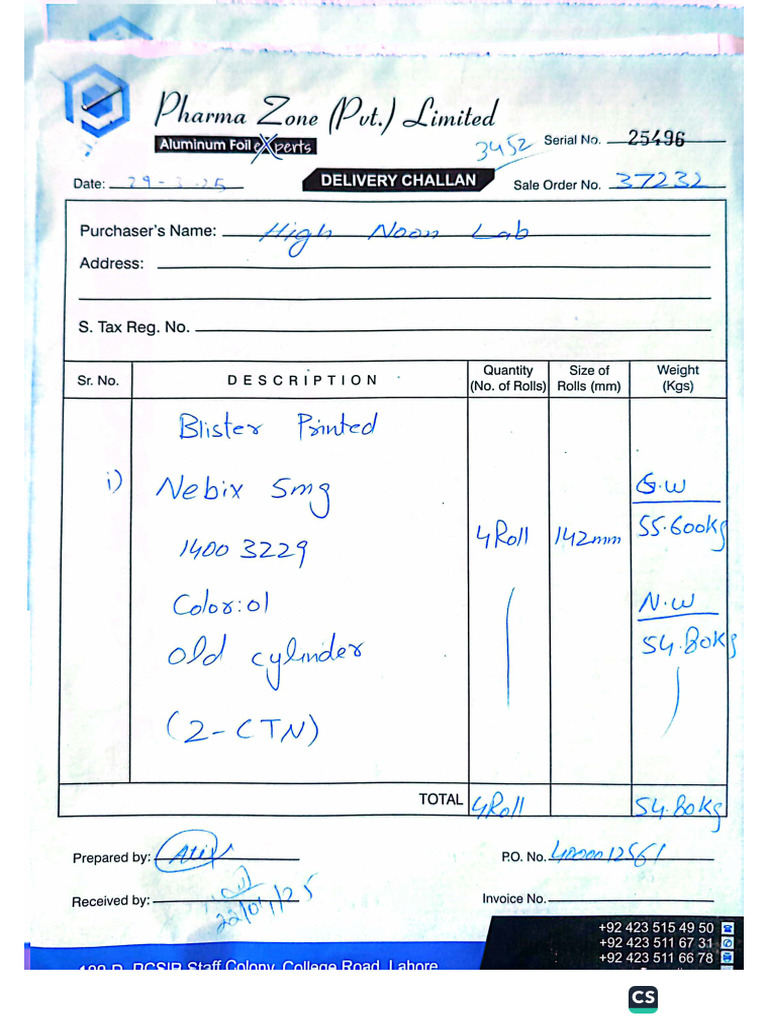 Pharma Zone (Pvt.) Limited
Aluminum Foil eXperts
3452
Serial No. 25496
Date: 29-3-25
DELIVERY CHALLAN
Sale Order No. 37232
Purchaser's Name: High Noon Lab
Address:
S. Tax Reg. No.
Sr. No. DESCRIPTION Quantity (No. of Rolls) Size of Rolls (mm) Weight (Kgs)
Blister Printed
i) Nebix 5mg G.w
1400 3229 4Roll 142mm 55.600Kg
Color:01 N.w
Old cylinder 54.80Kg
(2-CTN)
TOTAL 4Roll 54.80Kg
Prepared by:
P.O. No. 4000012561
Received by:
Invoice No.
+92 423 515 49 50
+92 423 511 67 31
+92 423 511 66 78
PCSIR Staff Colony, College Road, Lahore
CS